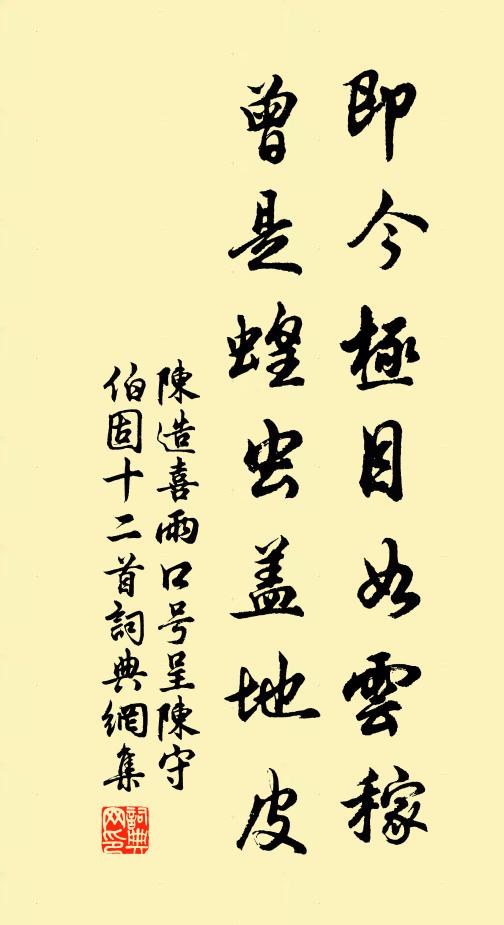 即今極目如雲稼
曾是蝗虫盖地皮
陳造喜雨口号呈陳守
伯固十二首詞典網集
詞典
网印